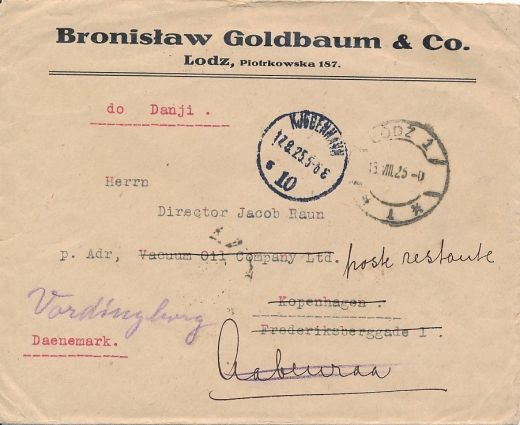 Bronisław Goldbaum & Co.
Lodz, Piotrkowska 187.
do Danji .
KJØBENHAVN
17.8.25.5-6 E
10
LODZ 1
13. VIII. 25
1
Herrn
Director Jacob Raun
p. Adr, Vacuum Oil Company Ltd. poste restante
Kopenhagen .
Vordingborg
Frederiksberggade 1 .
Daenemark.
Aabenraa